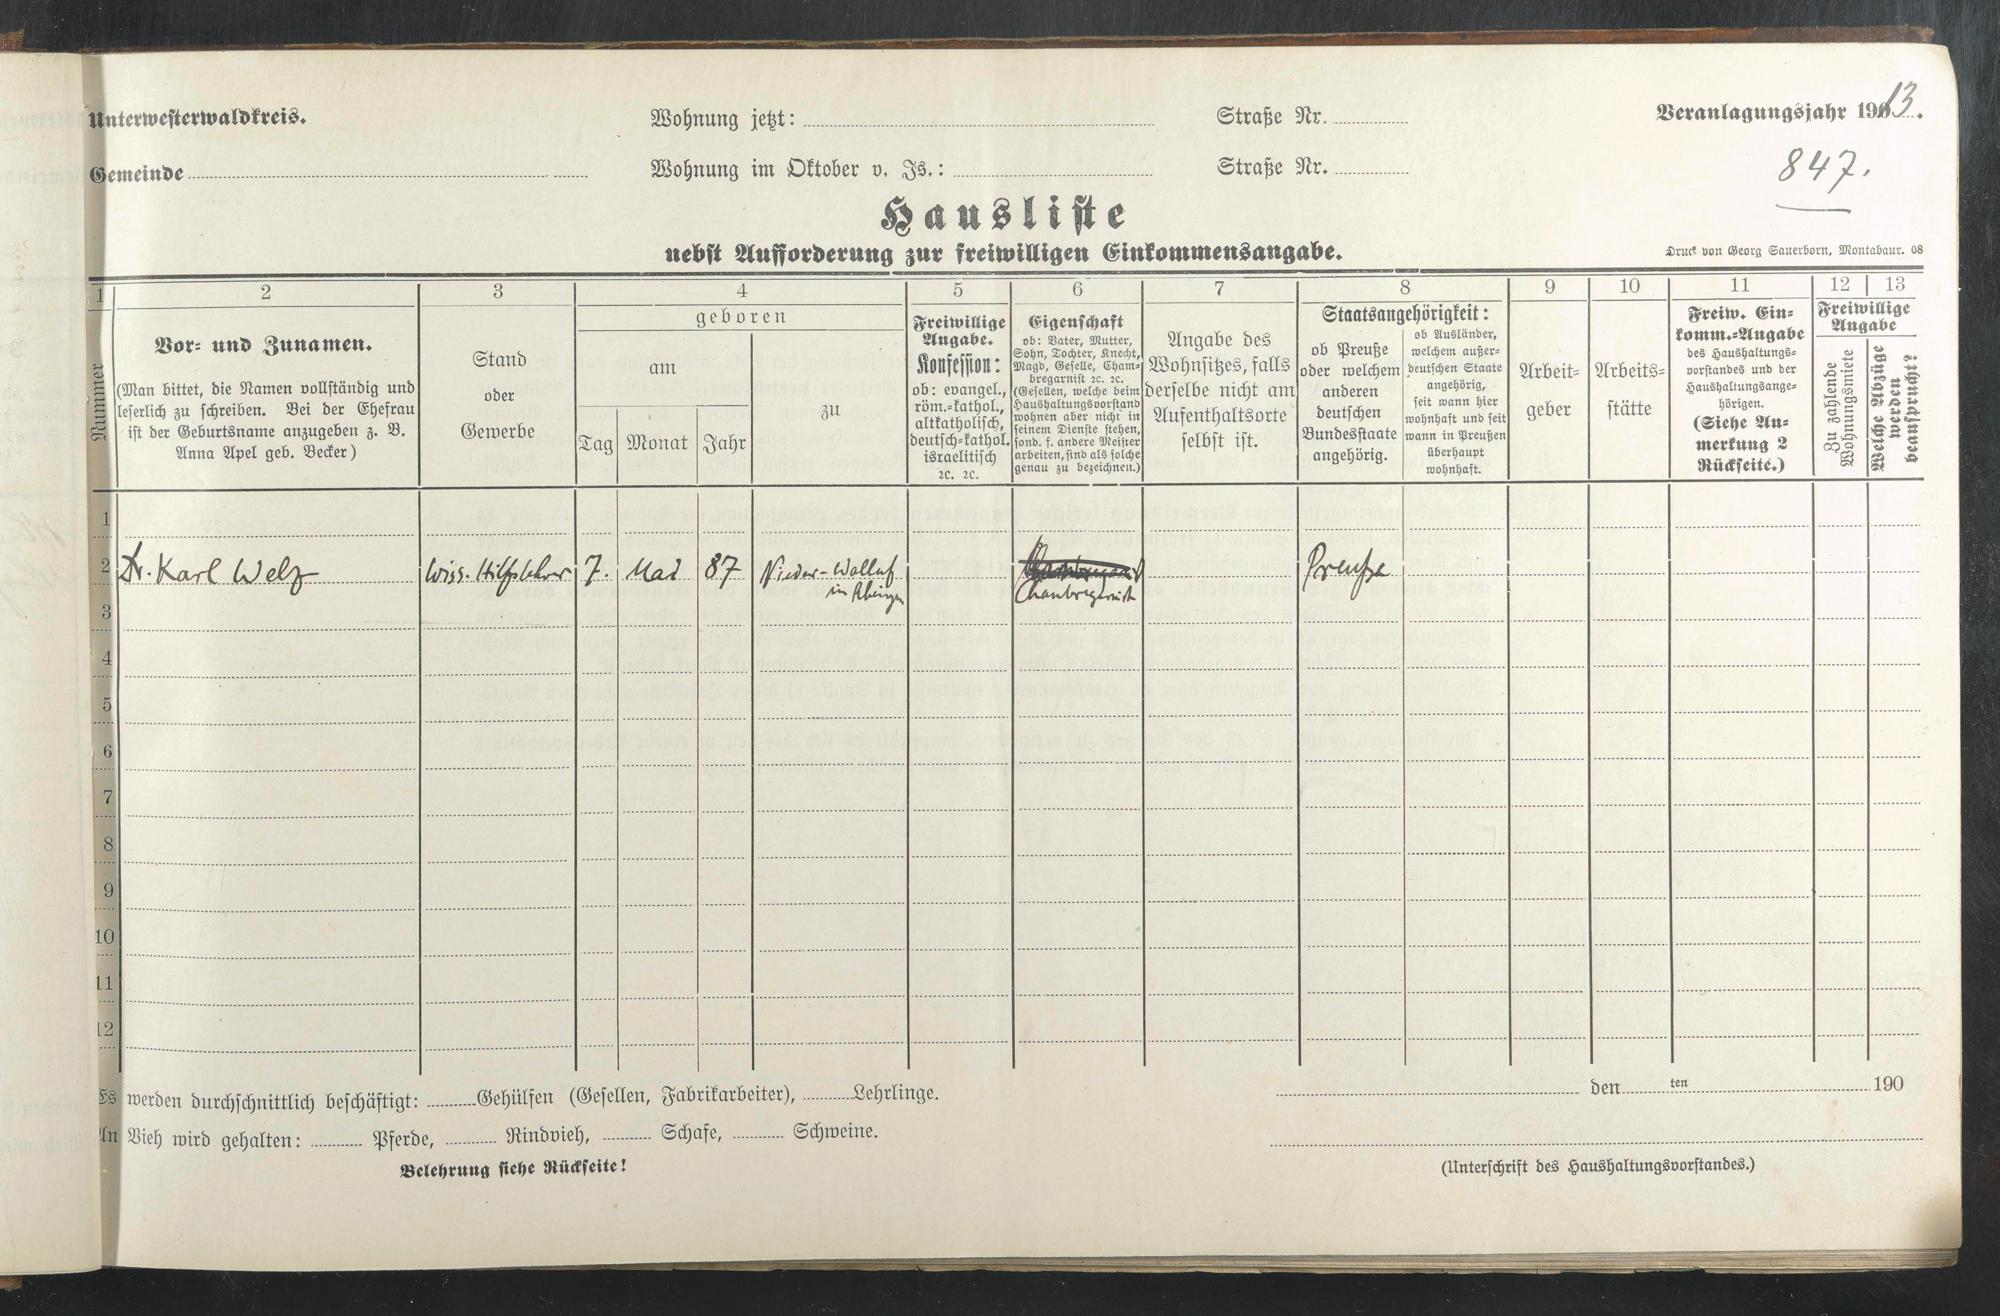 Unterwesterwaldkreis.
Wohnung jetzt:
Straße Nr.
Veranlagungsjahr 1913.
Gemeinde
Wohnung im Oktober v. Js.:
Straße Nr.
847.
Hausliste
nebst Aufforderung zur freiwilligen Einkommensangabe.
Druck von Georg Sauerborn, Montabaur. 08
1 2 3 4 5 6 7 8 9 10 11 12 13
Nummer
Vor- und Zunamen.
(Man bittet, die Namen vollständig und
leserlich zu schreiben. Bei der Ehefrau
ist der Geburtsname anzugeben z. B.
Anna Apel geb. Becker)
Stand
oder
Gewerbe
geboren
am
Tag Monat Jahr
zu
Freiwillige
Angabe.
Konfession:
ob: evangel.,
röm.-kathol.,
altkatholisch,
deutsch-kathol.
israelitisch
ꝛc. ꝛc.
Eigenschaft
ob: Vater, Mutter,
Sohn, Tochter, Knecht,
Magd, Geselle, Cham-
bregarnist ꝛc. ꝛc.
(Gesellen, welche beim
Haushaltungsvorstand
wohnen aber nicht in
seinem Dienste stehen,
sond. f. andere Meister
arbeiten, sind als solche
genau zu bezeichnen.)
Angabe des
Wohnsitzes, falls
derselbe nicht am
Aufenthaltsorte
selbst ist.
Staatsangehörigkeit:
ob Preuße
oder welchem
anderen
deutschen
Bundesstaate
angehörig.
ob Ausländer,
welchem außer-
deutschen Staate
angehörig,
seit wann hier
wohnhaft und seit
wann in Preußen
überhaupt
wohnhaft.
Arbeit-
geber
Arbeits-
stätte
Freiw. Ein-
komm.-Angabe
des Haushaltungs-
vorstandes und der
Haushaltungsange-
hörigen.
(Siehe An-
merkung 2
Rückseite.)
Freiwillige
Angabe
Zu zahlende
Wohnungsmiete
Welche Abzüge
werden
beansprucht?
1
2 Dr. Karl Welz Wiss. Hilfslehrer 7. Mai 87 Nieder-Walluf
in Rheingau
Chambregarnist
Preuße
3
4
5
6
7
8
9
10
11
12
Es werden durchschnittlich beschäftigt: Gehülfen (Gesellen, Fabrikarbeiter), Lehrlinge.
den ten 190
An Vieh wird gehalten: Pferde, Rindvieh, Schafe, Schweine.
Belehrung siehe Rückseite!
(Unterschrift des Haushaltungsvorstandes.)